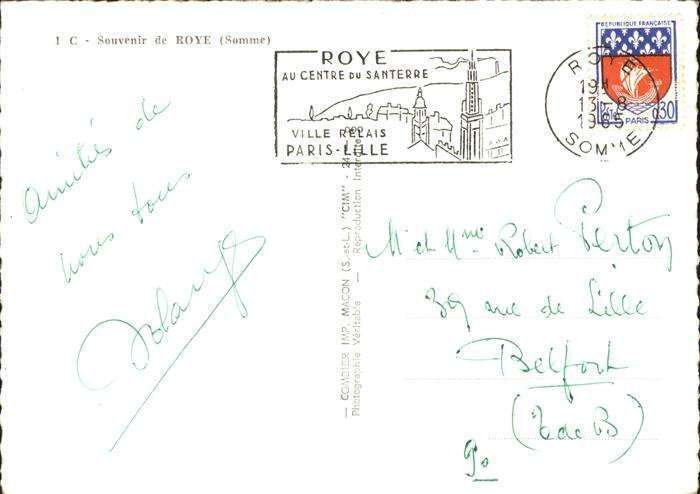 1 C - Souvenir de ROYE (Somme)
ROYE
AU CENTRE DU SANTERRE
VILLE RELAIS
PARIS-LILLE
ROYE
13-8
1965
SOMME
REPUBLIQUE FRANÇAISE
PARIS
0,30
amitiés de
nous tous
— COMBIER IMP. MACON (S.-et-L.) "CIM" -
Photographie Véritable — Reproduction
M et Mme Robert Perton
39 rue de Lille
Belfort
(T de B)
90